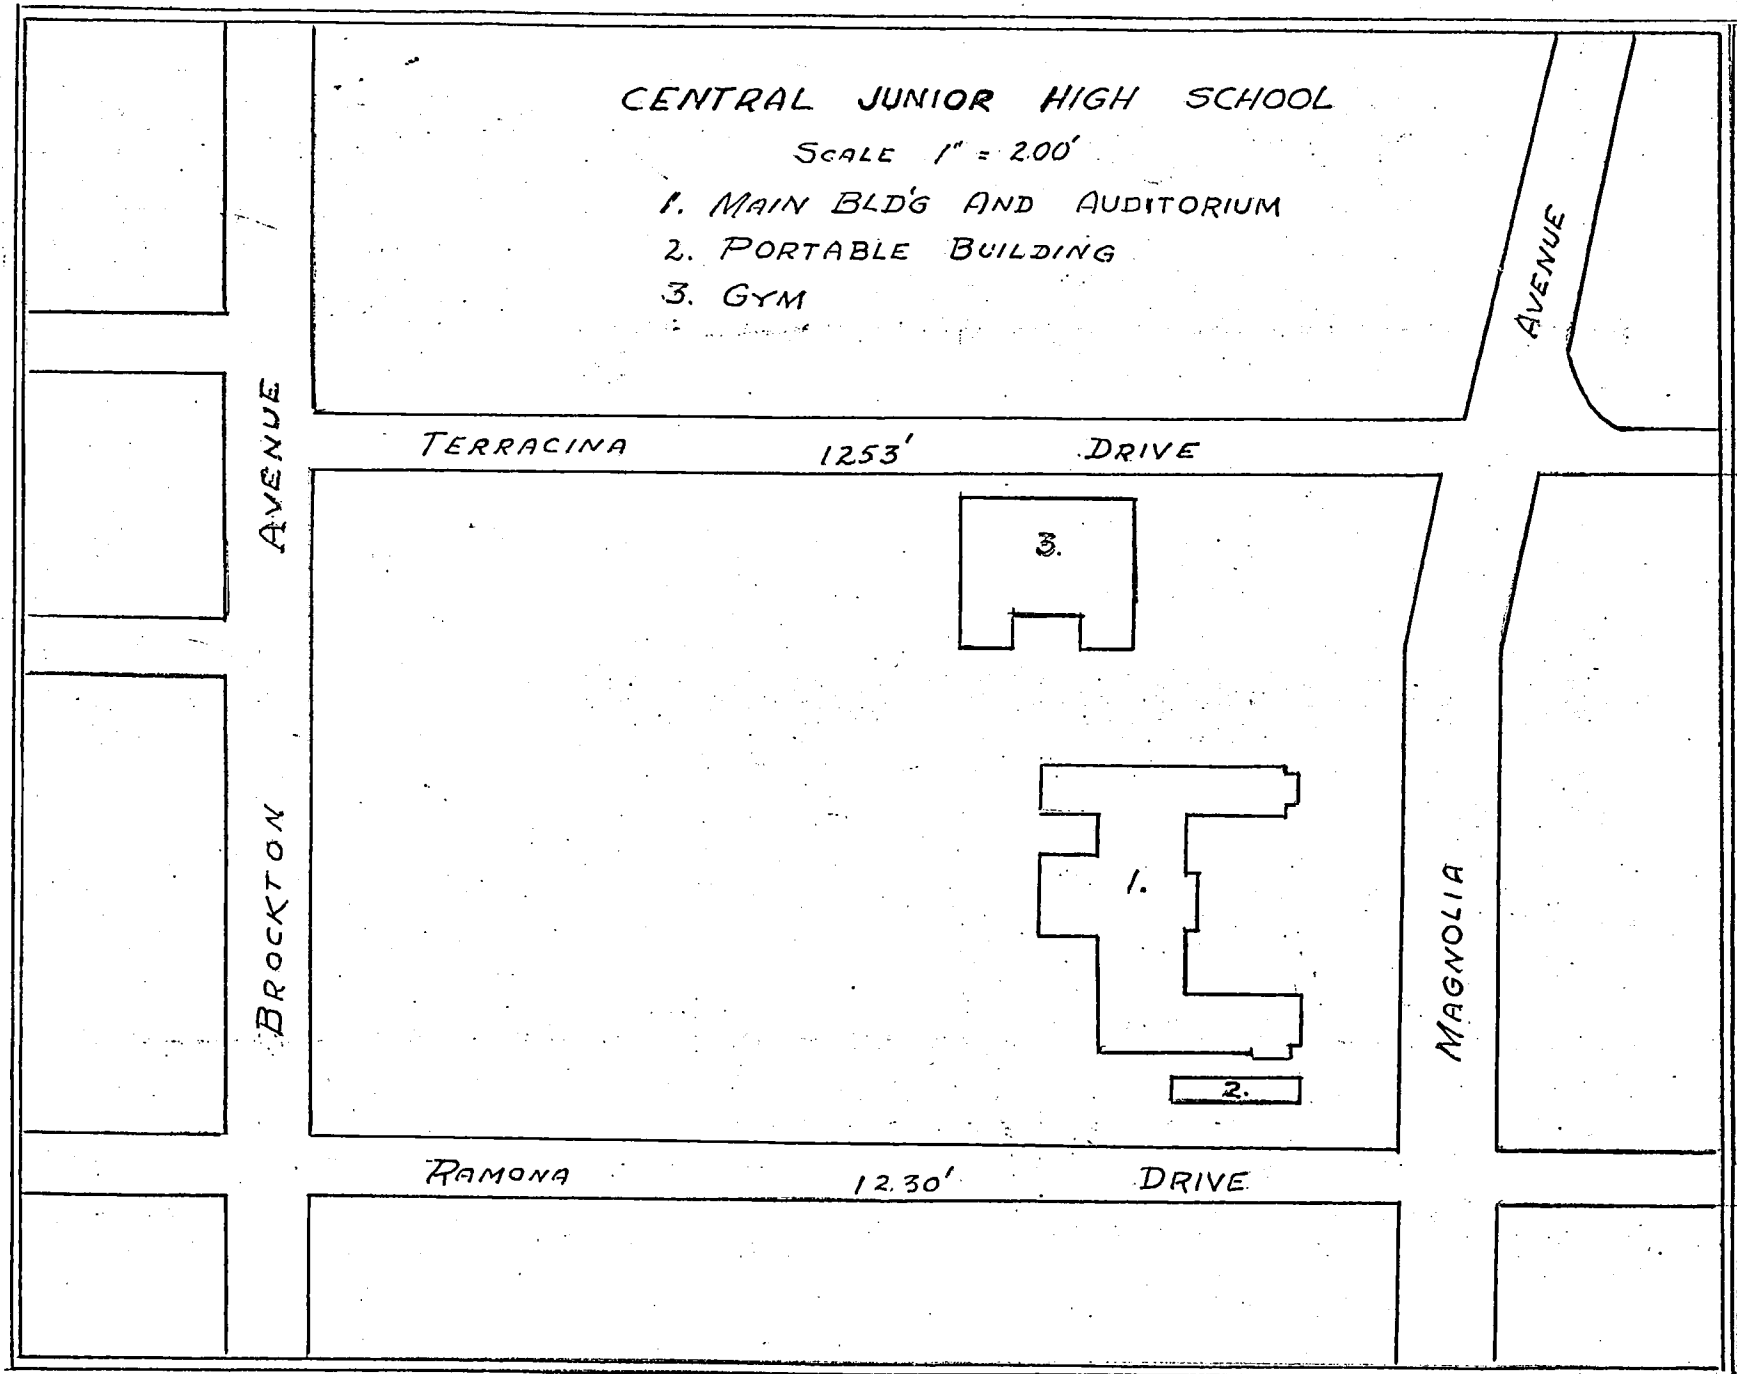 CENTRAL JUNIOR HIGH SCHOOL
SCALE 1" = 200'
1. MAIN BLD'G AND AUDITORIUM
2. PORTABLE BUILDING
3. GYM
AVENUE
TERRACINA 1253' DRIVE
BROCKTON AVENUE
3.
1.
MAGNOLIA
2.
RAMONA 1230' DRIVE